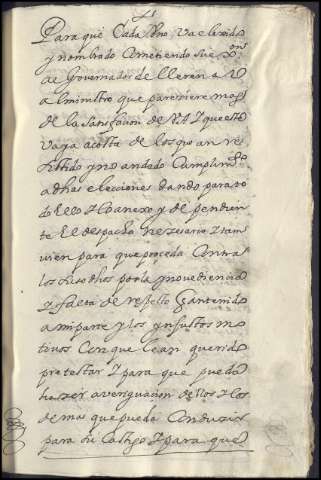 Para que Cada Uno Va elexido
y nombrado Cometiendo sue
al Governador de llerena U
al ministro que pareziere mas
de la Satisfazion de V.A. Y que esto
Vaya acosta de los que an res
istido y no an dado Cumplim.to
adhas elecciones dando para to
do ello Y lo anexo y de pendien
te El despacho Nezesario Y tam
uien para que proceda Contra
los suso dhos por la ynouediencia
y falta de respeto q an tenido
a mi parte y los ynjustos mo
tiuos Con que Sean querido
pretestar Y para que pueda
hazer averiguacion dellos Y lo
demas que pueda Conduzir
para su Castigo Y para que